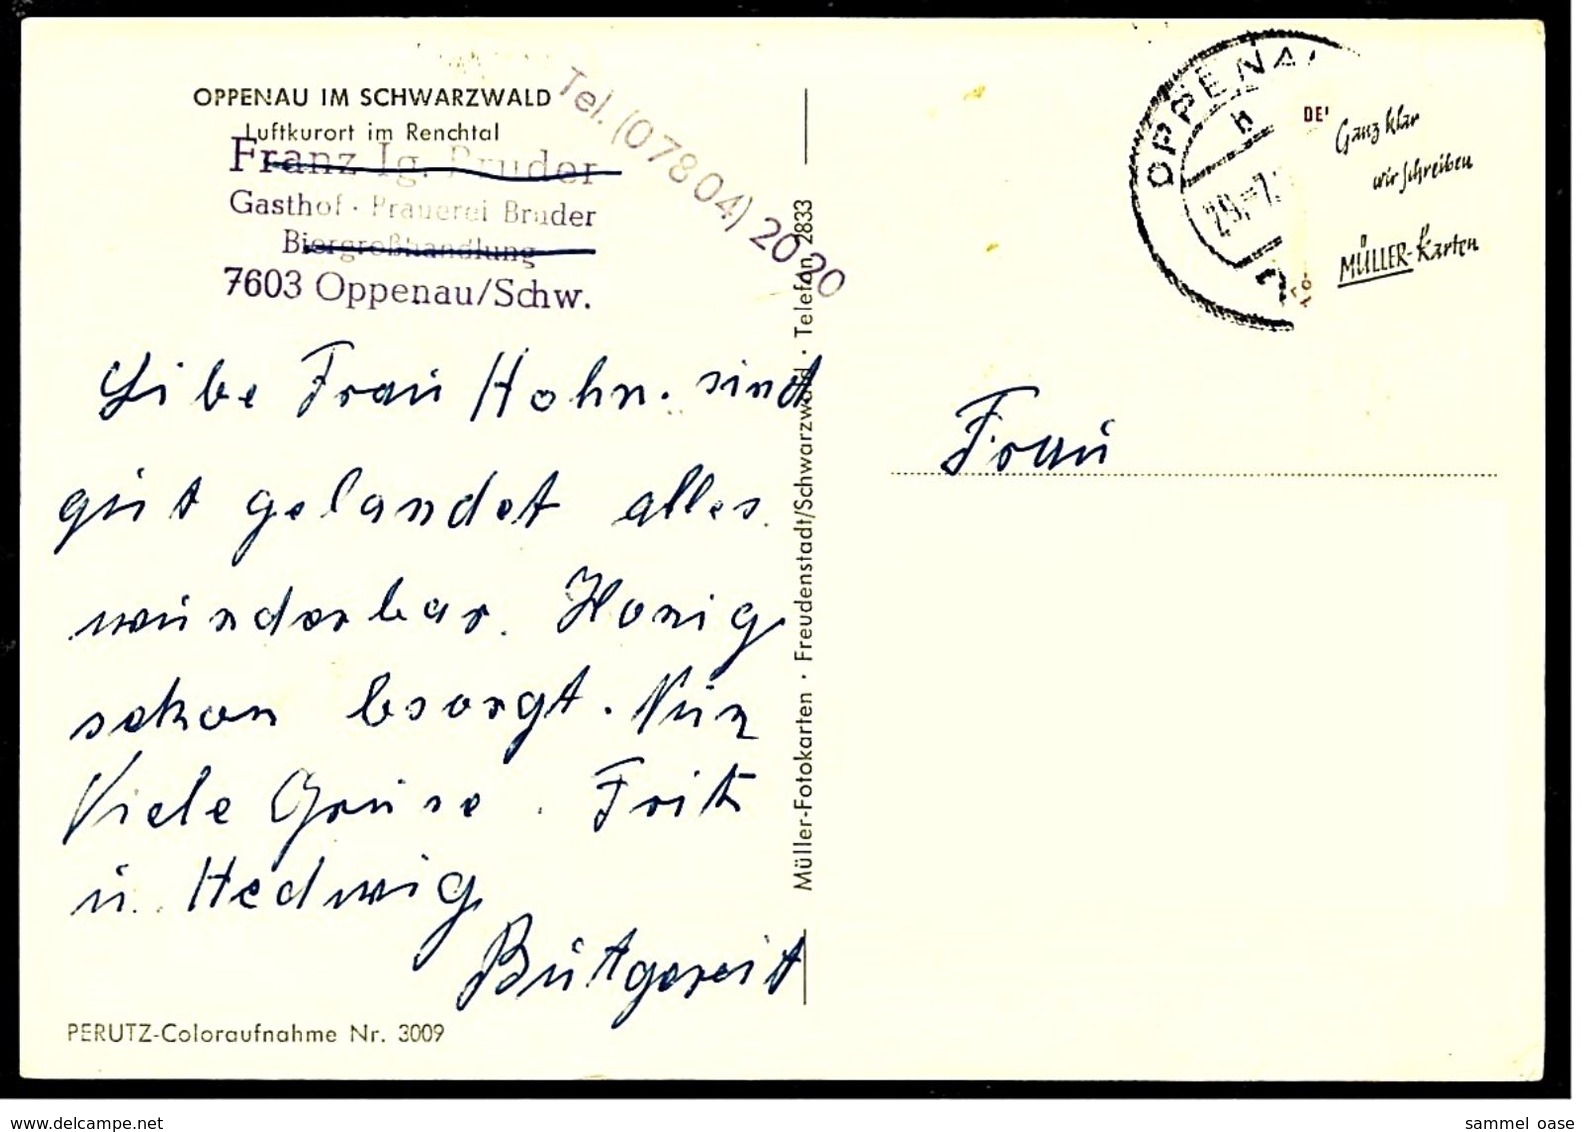 OPPENAU IM SCHWARZWALD
Luftkurort im Renchtal
Franz Ig. Bruder
Gasthof · Brauerei Bruder
Biergroßhandlung
7603 Oppenau/Schw.
Tel. (07804) 2020
Libe Frau Hohn. sind
gut gelandet alles
wunderbar. Honig
schon besorgt. Nun
Viele Grüse. Fritz
u. Hedwig
Butgereit
PERUTZ-Coloraufnahme Nr. 3009
Müller-Fotokarten · Freudenstadt/Schwarzwald · Telefon 2833
OPPENAU
h
29.-7.
DE
Ganz klar
wir schreiben
MÜLLER-Karten
Frau
delcampe.net
sammel_oase